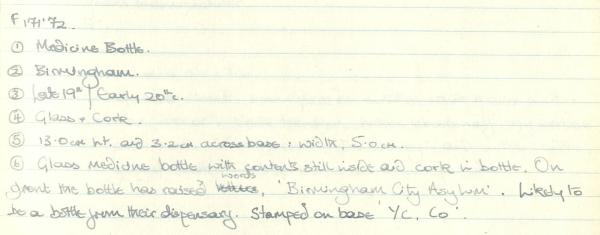 F171'72.
① Medicine Bottle.
② Birmingham.
③ late 19th / Early 20th c.
④ Glass + Cork.
⑤ 13.0cm ht. and 3.2cm across base: width, 5.0cm.
⑥ Glass medicine bottle with contents still inside and cork in bottle. On
front the bottle has raised words, 'Birmingham City Asylum'. Likely to
be a bottle from their dispensary. Stamped on base 'YC, Co'.